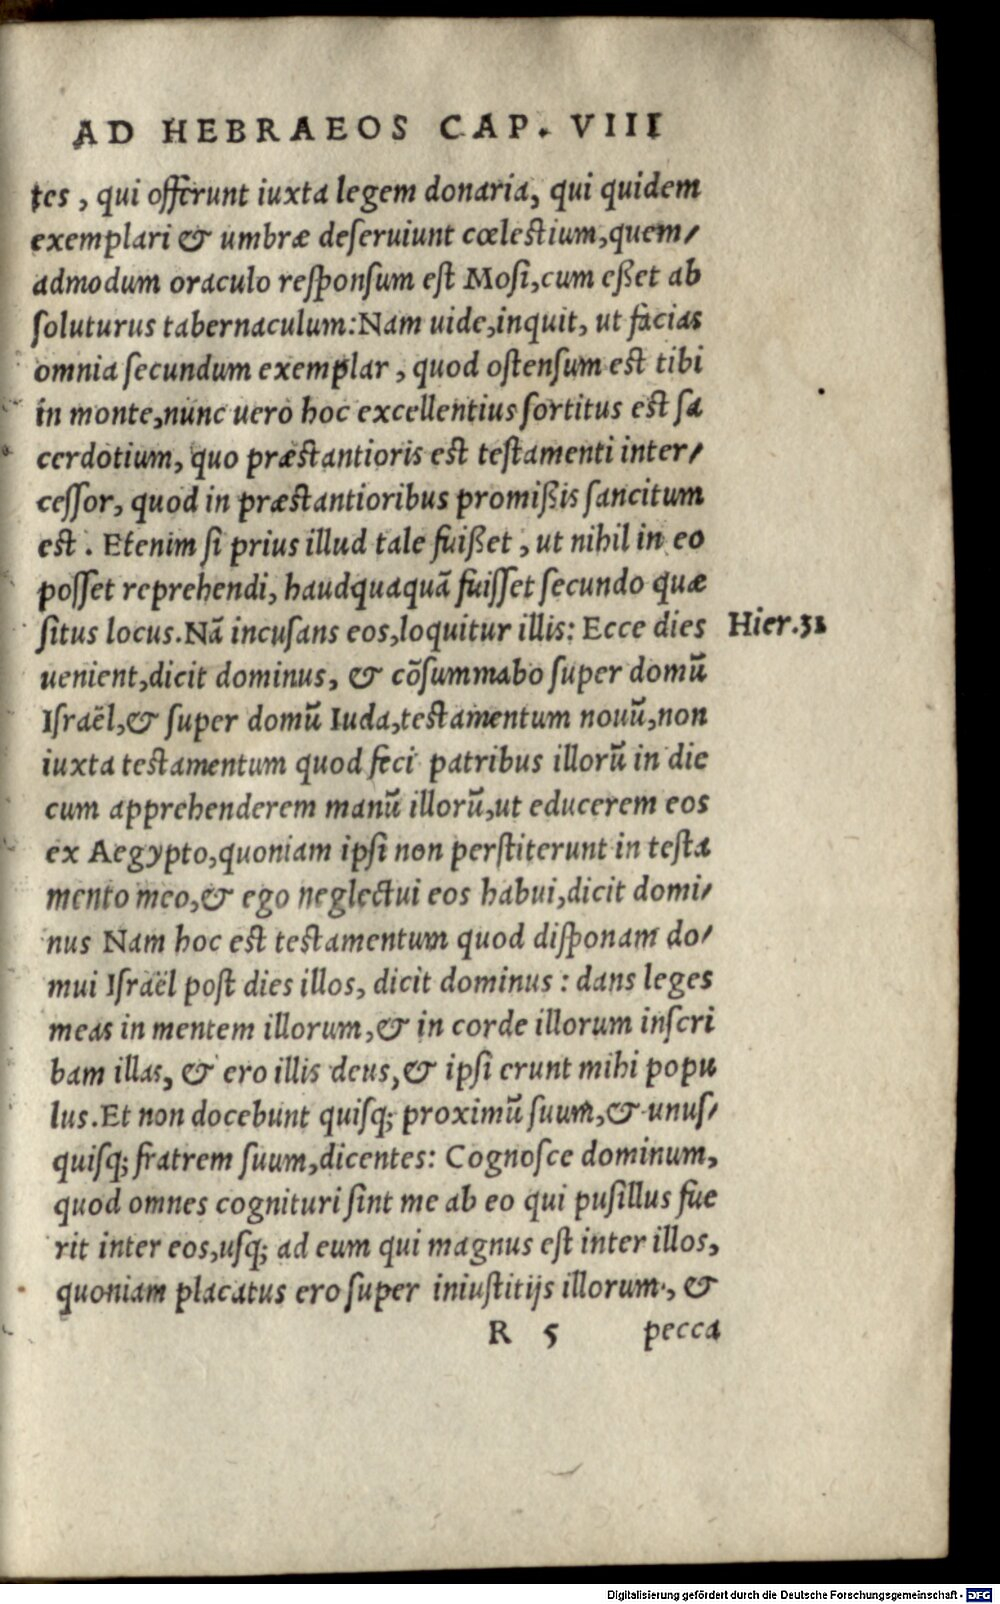 AD HEBRAEOS CAP. VIII
tes, qui offerunt iuxta legem donaria, qui quidem
exemplari & umbræ deſeruiunt cœleſtium, quem/
admodum oraculo reſponſum eſt Moſi, cum eßet ab
ſoluturus tabernaculum: Nam uide, inquit, ut facias
omnia ſecundum exemplar, quod oſtenſum eſt tibi
in monte, nunc uero hoc excellentius ſortitus eſt ſa
cerdotium, quo præſtantioris eſt teſtamenti inter/
ceſſor, quod in præſtantioribus promißis ſancitum
est. Etenim ſi prius illud tale fuißet, ut nihil in eo
poſſet reprehendi, haudquaquã fuiſſet ſecundo quæ
ſitus locus. Nã incuſans eos, loquitur illis: Ecce dies
Hier. 31
uenient, dicit dominus, & cõſummabo ſuper domũ
Iſraël, & ſuper domũ Iuda, teſtamentum nouũ, non
iuxta teſtamentum quod feci patribus illorũ in die
cum apprehenderem manũ illorũ, ut educerem eos
ex Aegypto, quoniam ipſi non perſtiterunt in teſta
mento meo, & ego neglectui eos habui, dicit domi/
nus Nam hoc eſt teſtamentum quod diſponam do/
mui Iſraël poſt dies illos, dicit dominus: dans leges
meas in mentem illorum, & in corde illorum inſcri
bam illas, & ero illis deus, & ipſi erunt mihi popu
lus. Et non docebunt quiſq; proximũ ſuum, & unuſ/
quiſq; fratrem ſuum, dicentes: Cognoſce dominum,
quod omnes cognituri ſint me ab eo qui puſillus fue
rit inter eos, uſq; ad eum qui magnus eſt inter illos,
quoniam placatus ero ſuper iniuſtitijs illorum, &
R 5 pecca
Digitalisierung gefördert durch die Deutsche Forschungsgemeinschaft - DFG